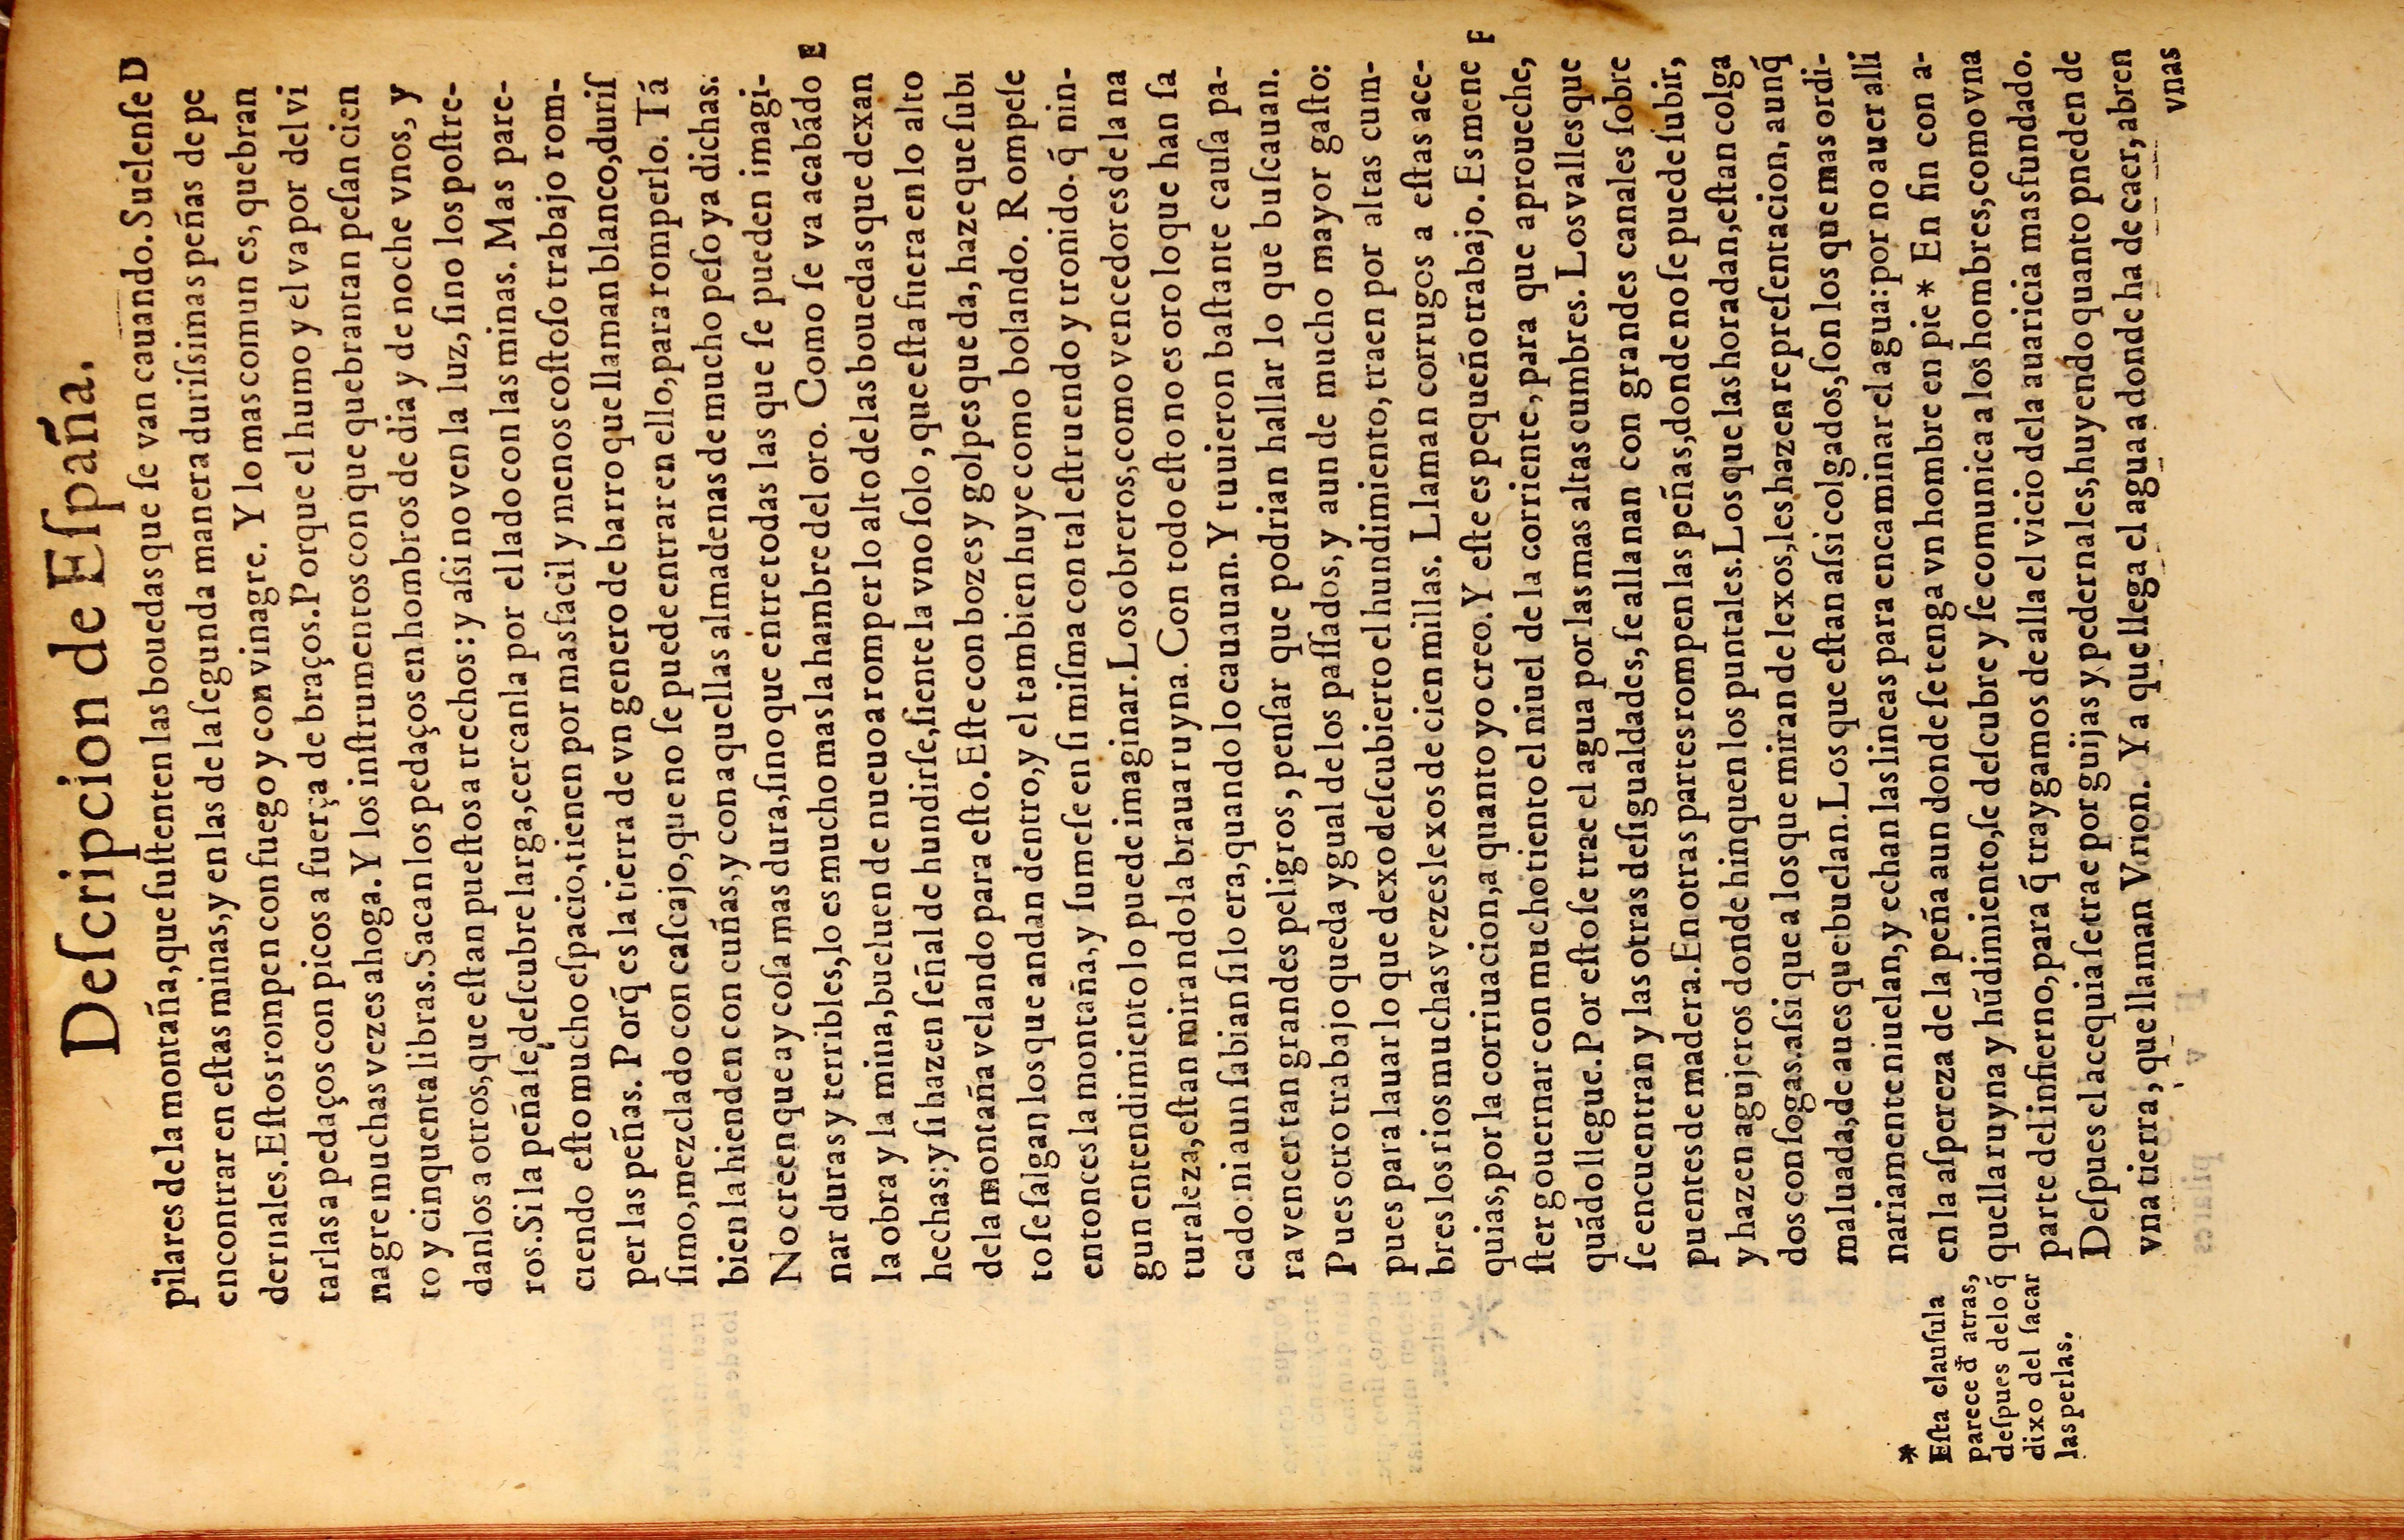 Deſcripcion de Eſpaña.
pilares de la montaña, que ſuſtenten las bouedas que ſe van cauando. Suelenſe D
encontrar en eſtas minas, y en las de la ſegunda manera duriſsimas peñas de pe
dernales. Eſtos rompen con fuego y con vinagre. Y lo mas comun es, quebran
tarlas a pedaços con picos a fuerça de braços. Porque el humo y el vapor del vi
nagre muchas vezes ahoga. Y los inſtrumentos con que quebrantan peſan cien
to y cinquenta libras. Sacan los pedaços en hombros de dia y de noche vnos, y
danlos a otros, que eſtan pueſtos a trechos: y aſsi no ven la luz, ſino los poſtre-
ros. Si la peña ſe deſcubre larga, cercanla por el lado con las minas. Mas pare-
ciendo eſto mucho eſpacio, tienen por mas facil y menos coſtoſo trabajo rom-
per las peñas. Porq̃ es la tierra de vn genero de barro que llaman blanco, duriſ
ſimo, mezclado con caſcajo, que no ſe puede entrar en ello, para romperlo. Tá
bien la hienden con cuñas, y con aquellas almadenas de mucho peſo ya dichas.
No creen que ay coſa mas dura, ſino que entre todas las que ſe pueden imagi-
nar duras y terribles, lo es mucho mas la hambre del oro. Como ſe va acabádo E
la obra y la mina, bueluen de nueuo a romper lo alto de las bouedas que dexan
hechas: y ſi hazen ſeñal de hundirſe, ſiente la vno ſolo, que eſta fuera en lo alto
de la montaña velando para eſto. Eſte con bozes y golpes que da, haze que ſubi
to ſe ſalgan los que andan dentro, y el tambien huye como bolando. Rompeſe
entonces la montaña, y ſumeſe en ſi miſma con tal eſtruendo y tronido. q̃ nin-
gun entendimiento lo puede imaginar. Los obreros, como vencedores de la na
turaleza, eſtan mirando la braua ruyna. Con todo eſto no es oro lo que han ſa
cado: ni aun ſabian ſi lo era, quando lo cauauan. Y tuuieron baſtante cauſa pa-
ra vencer tan grandes peligros, penſar que podrian hallar lo que buſcauan.
Pues otro trabajo queda ygual de los paſſados, y aun de mucho mayor gaſto:
pues para lauar lo que dexo deſcubierto el hundimiento, traen por altas cum-
bres los rios muchas vezes lexos de cien millas. Llaman corrugos a eſtas ace-
quias, por la corriuacion, a quanto yo creo. Y eſte es pequeño trabajo. Es mene F
ſter gouernar con mucho tiento el niuel de la corriente, para que aproueche,
quádo llegue. Por eſto ſe trae el agua por las mas altas cumbres. Los valles que
ſe encuentran y las otras deſigualdades, ſe allanan con grandes canales ſobre
puentes de madera. En otras partes rompen las peñas, donde no ſe puede ſubir,
y hazen agujeros donde hinquen los puntales. Los que las horadan, eſtan colga
dos con ſogas. aſsi que a los que miran de lexos, les hazen repreſentacion, aunq̃
maluada, de aues que buelan. Los que eſtan aſsi colgados, ſon los que mas ordi-
nariamente niuelan, y echan las lineas para encaminar el agua: por no auer alli
en la aſpereza de la peña aun donde ſe tenga vn hombre en pie * En fin con a-
quella ruyna y hũdimiento, ſe deſcubre y ſe comunica a los hombres, como vna
parte del infierno, para q̃ traygamos de alla el vicio de la auaricia mas fundado.
Deſpues el acequia ſe trae por guijas y pedernales, huyendo quanto pueden de
vna tierra, que llaman Vrion. Ya que llega el agua a donde ha de caer, abren
vnas
*
Eſta clauſula
parece đ atras,
deſpues delo q̃
dixo del ſacar
las perlas.